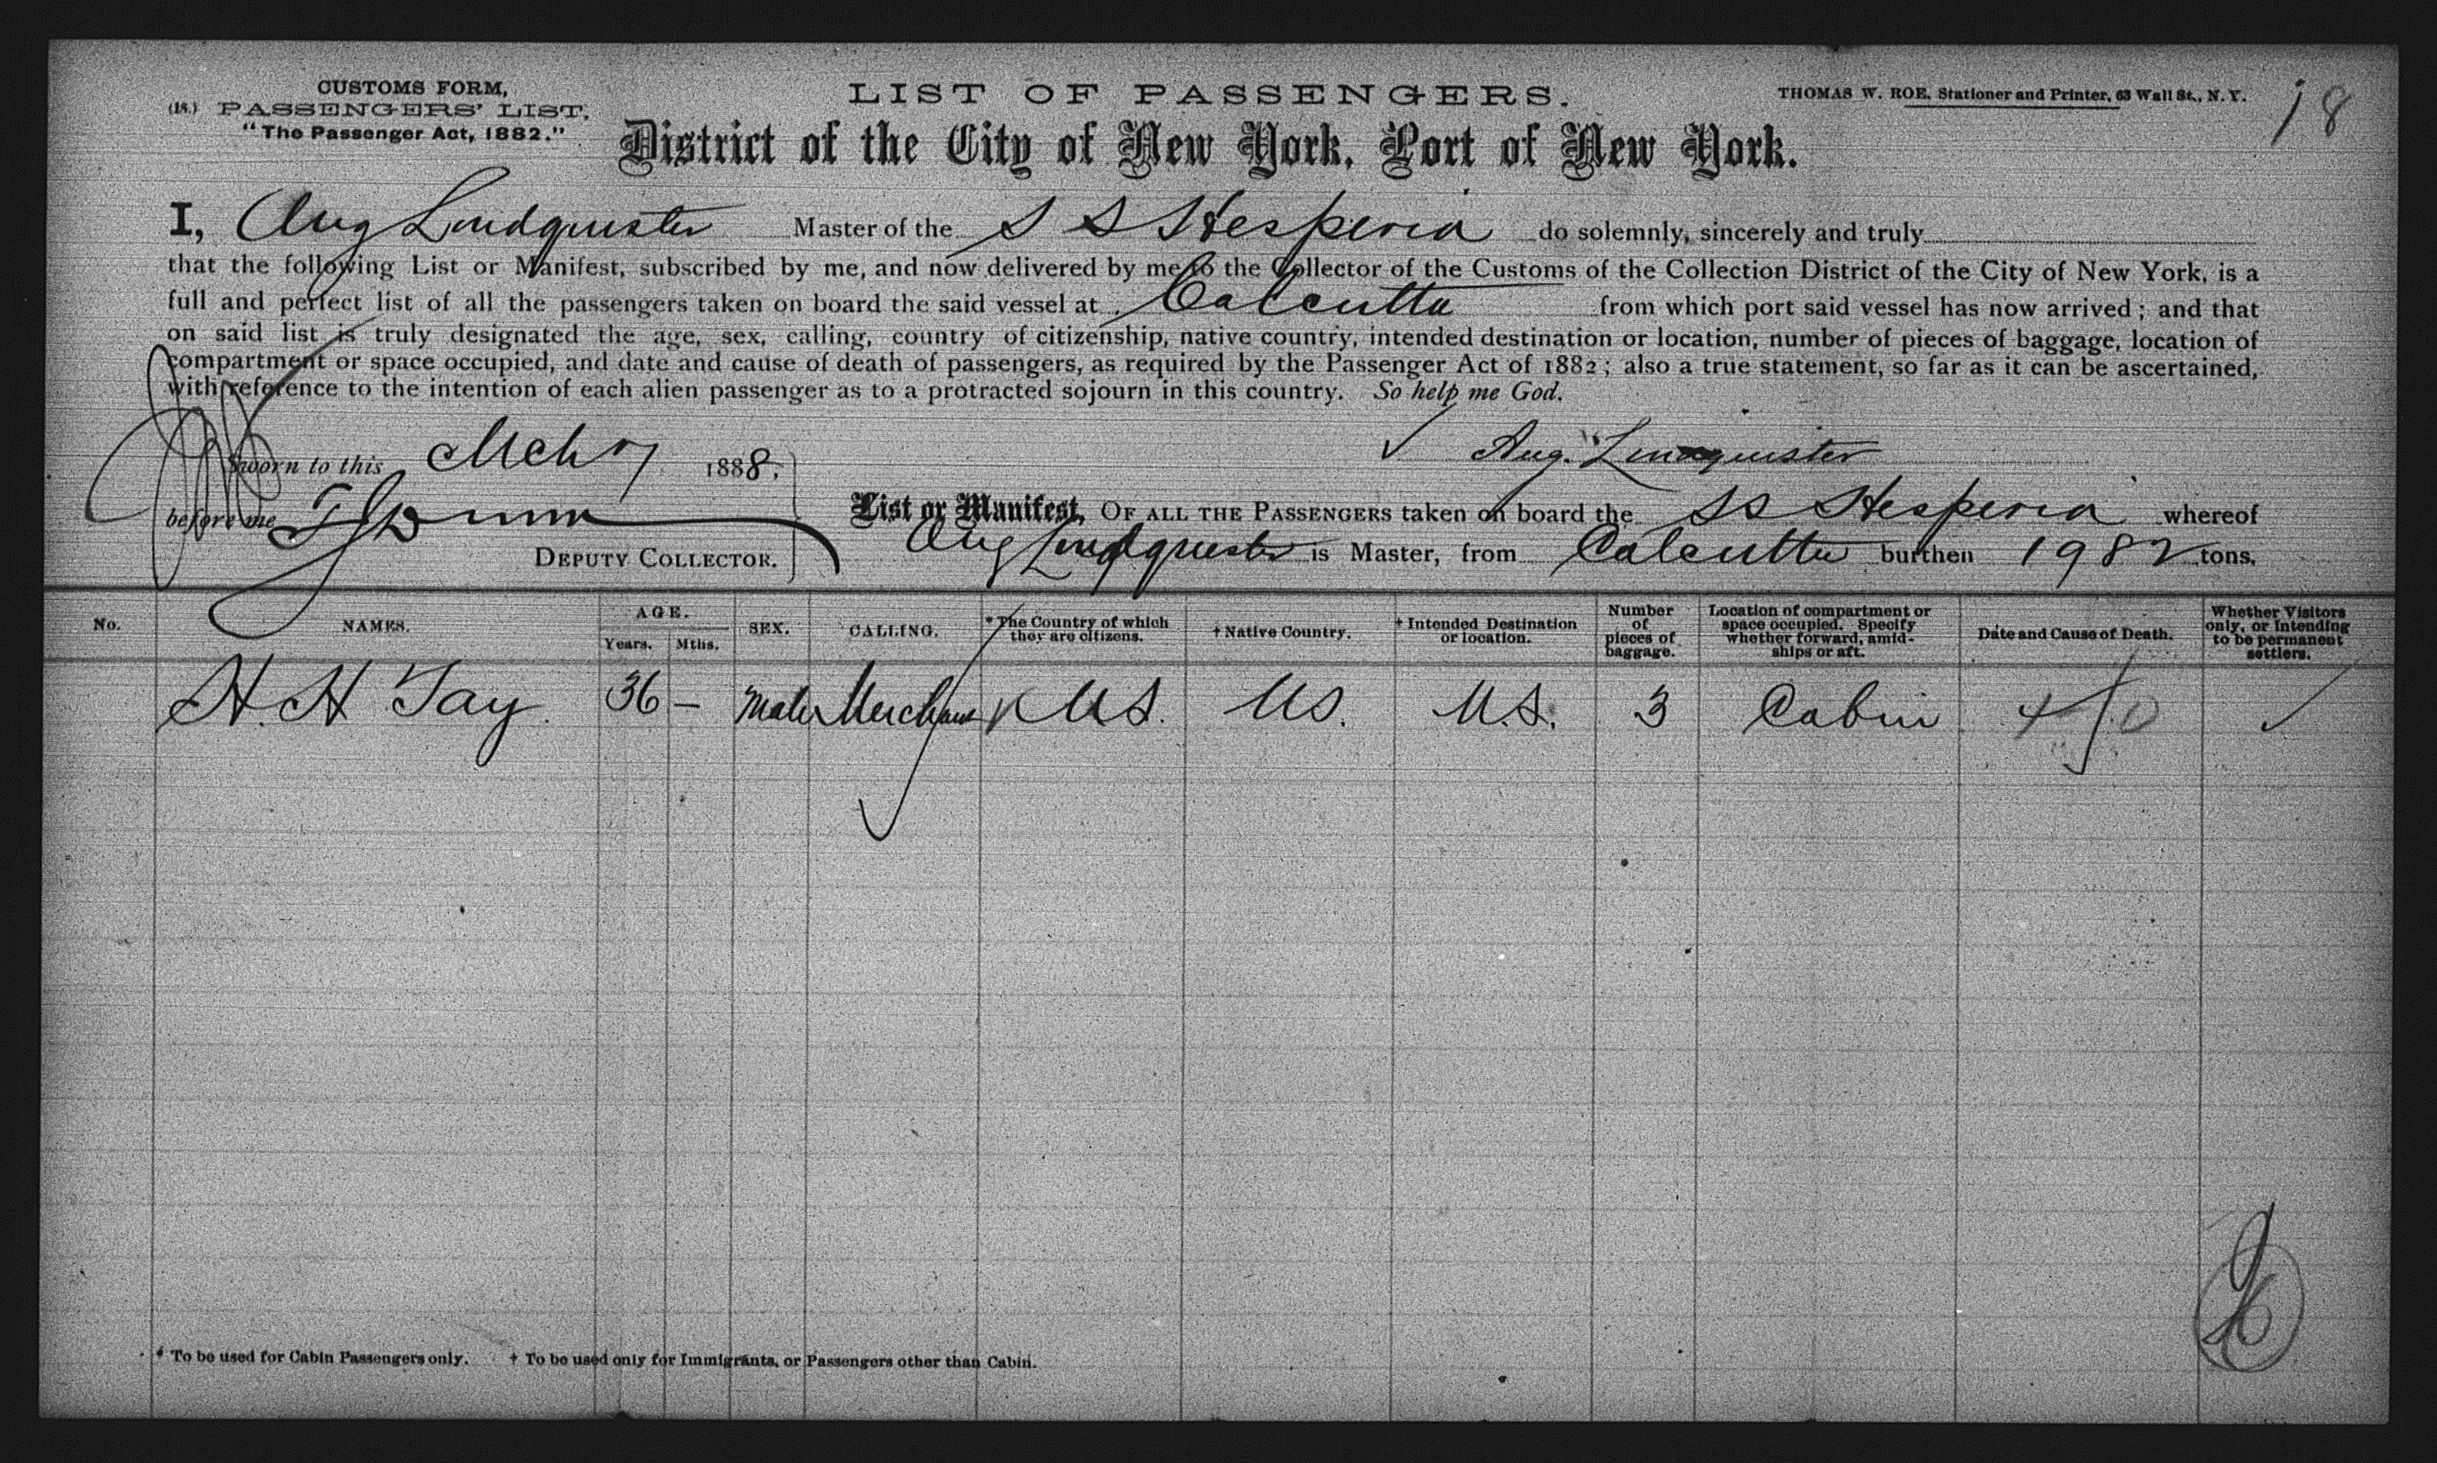 CUSTOMS FORM,
(18.) PASSENGERS' LIST,
"The Passenger Act, 1882."
LIST OF PASSENGERS.
THOMAS W. ROE, Stationer and Printer, 63 Wall St., N. Y.
18
District of the City of New York, Port of New York.
I, Aug Lindquister Master of the S S Hesperia do solemnly, sincerely and truly
that the following List or Manifest, subscribed by me, and now delivered by me to the Collector of the Customs of the Collection District of the City of New York, is a
full and perfect list of all the passengers taken on board the said vessel at Calcutta from which port said vessel has now arrived; and that
on said list is truly designated the age, sex, calling, country of citizenship, native country, intended destination or location, number of pieces of baggage, location of
compartment or space occupied, and date and cause of death of passengers, as required by the Passenger Act of 1882; also a true statement, so far as it can be ascertained,
with reference to the intention of each alien passenger as to a protracted sojourn in this country. So help me God.
Sworn to this Mch 7 1888,
Aug. Lindquister
before me
DEPUTY COLLECTOR.
List or Manifest, OF ALL THE PASSENGERS taken on board the SS Hesperia whereof
Aug Lindquister is Master, from Calcutta burthen 1982 tons.
No. NAMES. AGE. Years. Mths. SEX. CALLING. * The Country of which they are citizens. † Native Country. † Intended Destination or location. Number of pieces of baggage. Location of compartment or space occupied. Specify whether forward, amidships or aft. Date and Cause of Death. Whether Visitors only, or Intending to be permanent settlers.
H. H Tay 36 — Male Merchant US. US. U.S. 3 Cabin
* To be used for Cabin Passengers only. † To be used only for Immigrants, or Passengers other than Cabin.